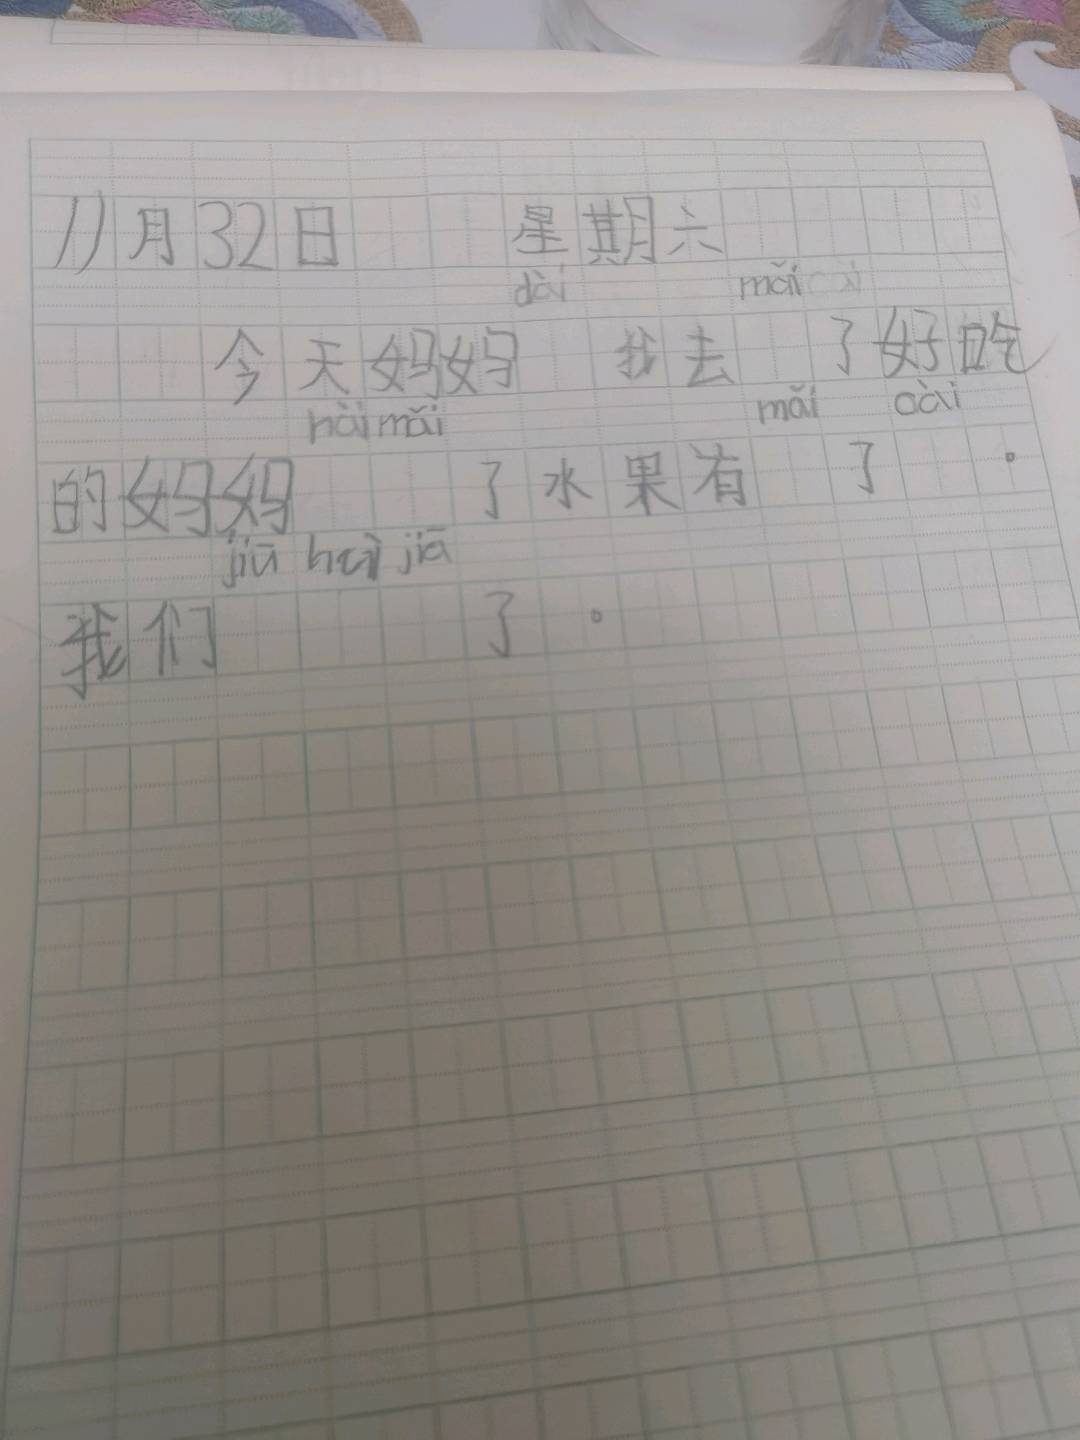 11月32日 星期六
dài mǎi
今天妈妈 我去 了好吃
hài mǎi mǎi cài
的妈妈 了水果有 了 。
jiū huì jiā
我们 了 。